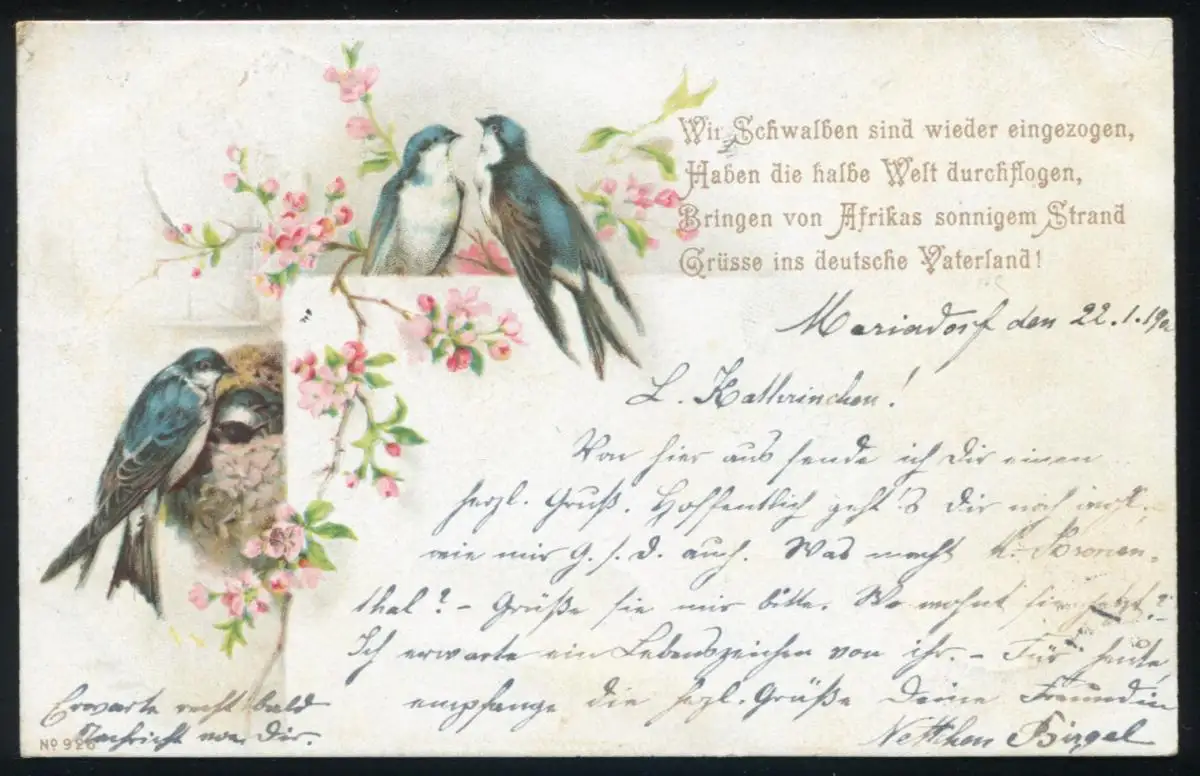 Wir Schwalben sind wieder eingezogen,
Haben die halbe Welt durchflogen,
Bringen von Afrikas sonnigem Strand
Grüsse ins deutsche Vaterland!
Mariadorf den 22.1.19
L. Kathrinchen!
Von hier aus sende ich Dir einen
herzl. Gruß. Hoffentlich geht's Dir noch
wie mir G. s. d. auch. Was macht
thal? - Grüße sie mir bitte. Wo wohnt sie jetzt?
Ich erwarte ein Lebenszeichen von ihr. - Für heute
empfange die herzl. Grüße Deine Freundin
Nettchen Birgel
Erwarte recht bald
Nachricht von Dir.
No 926